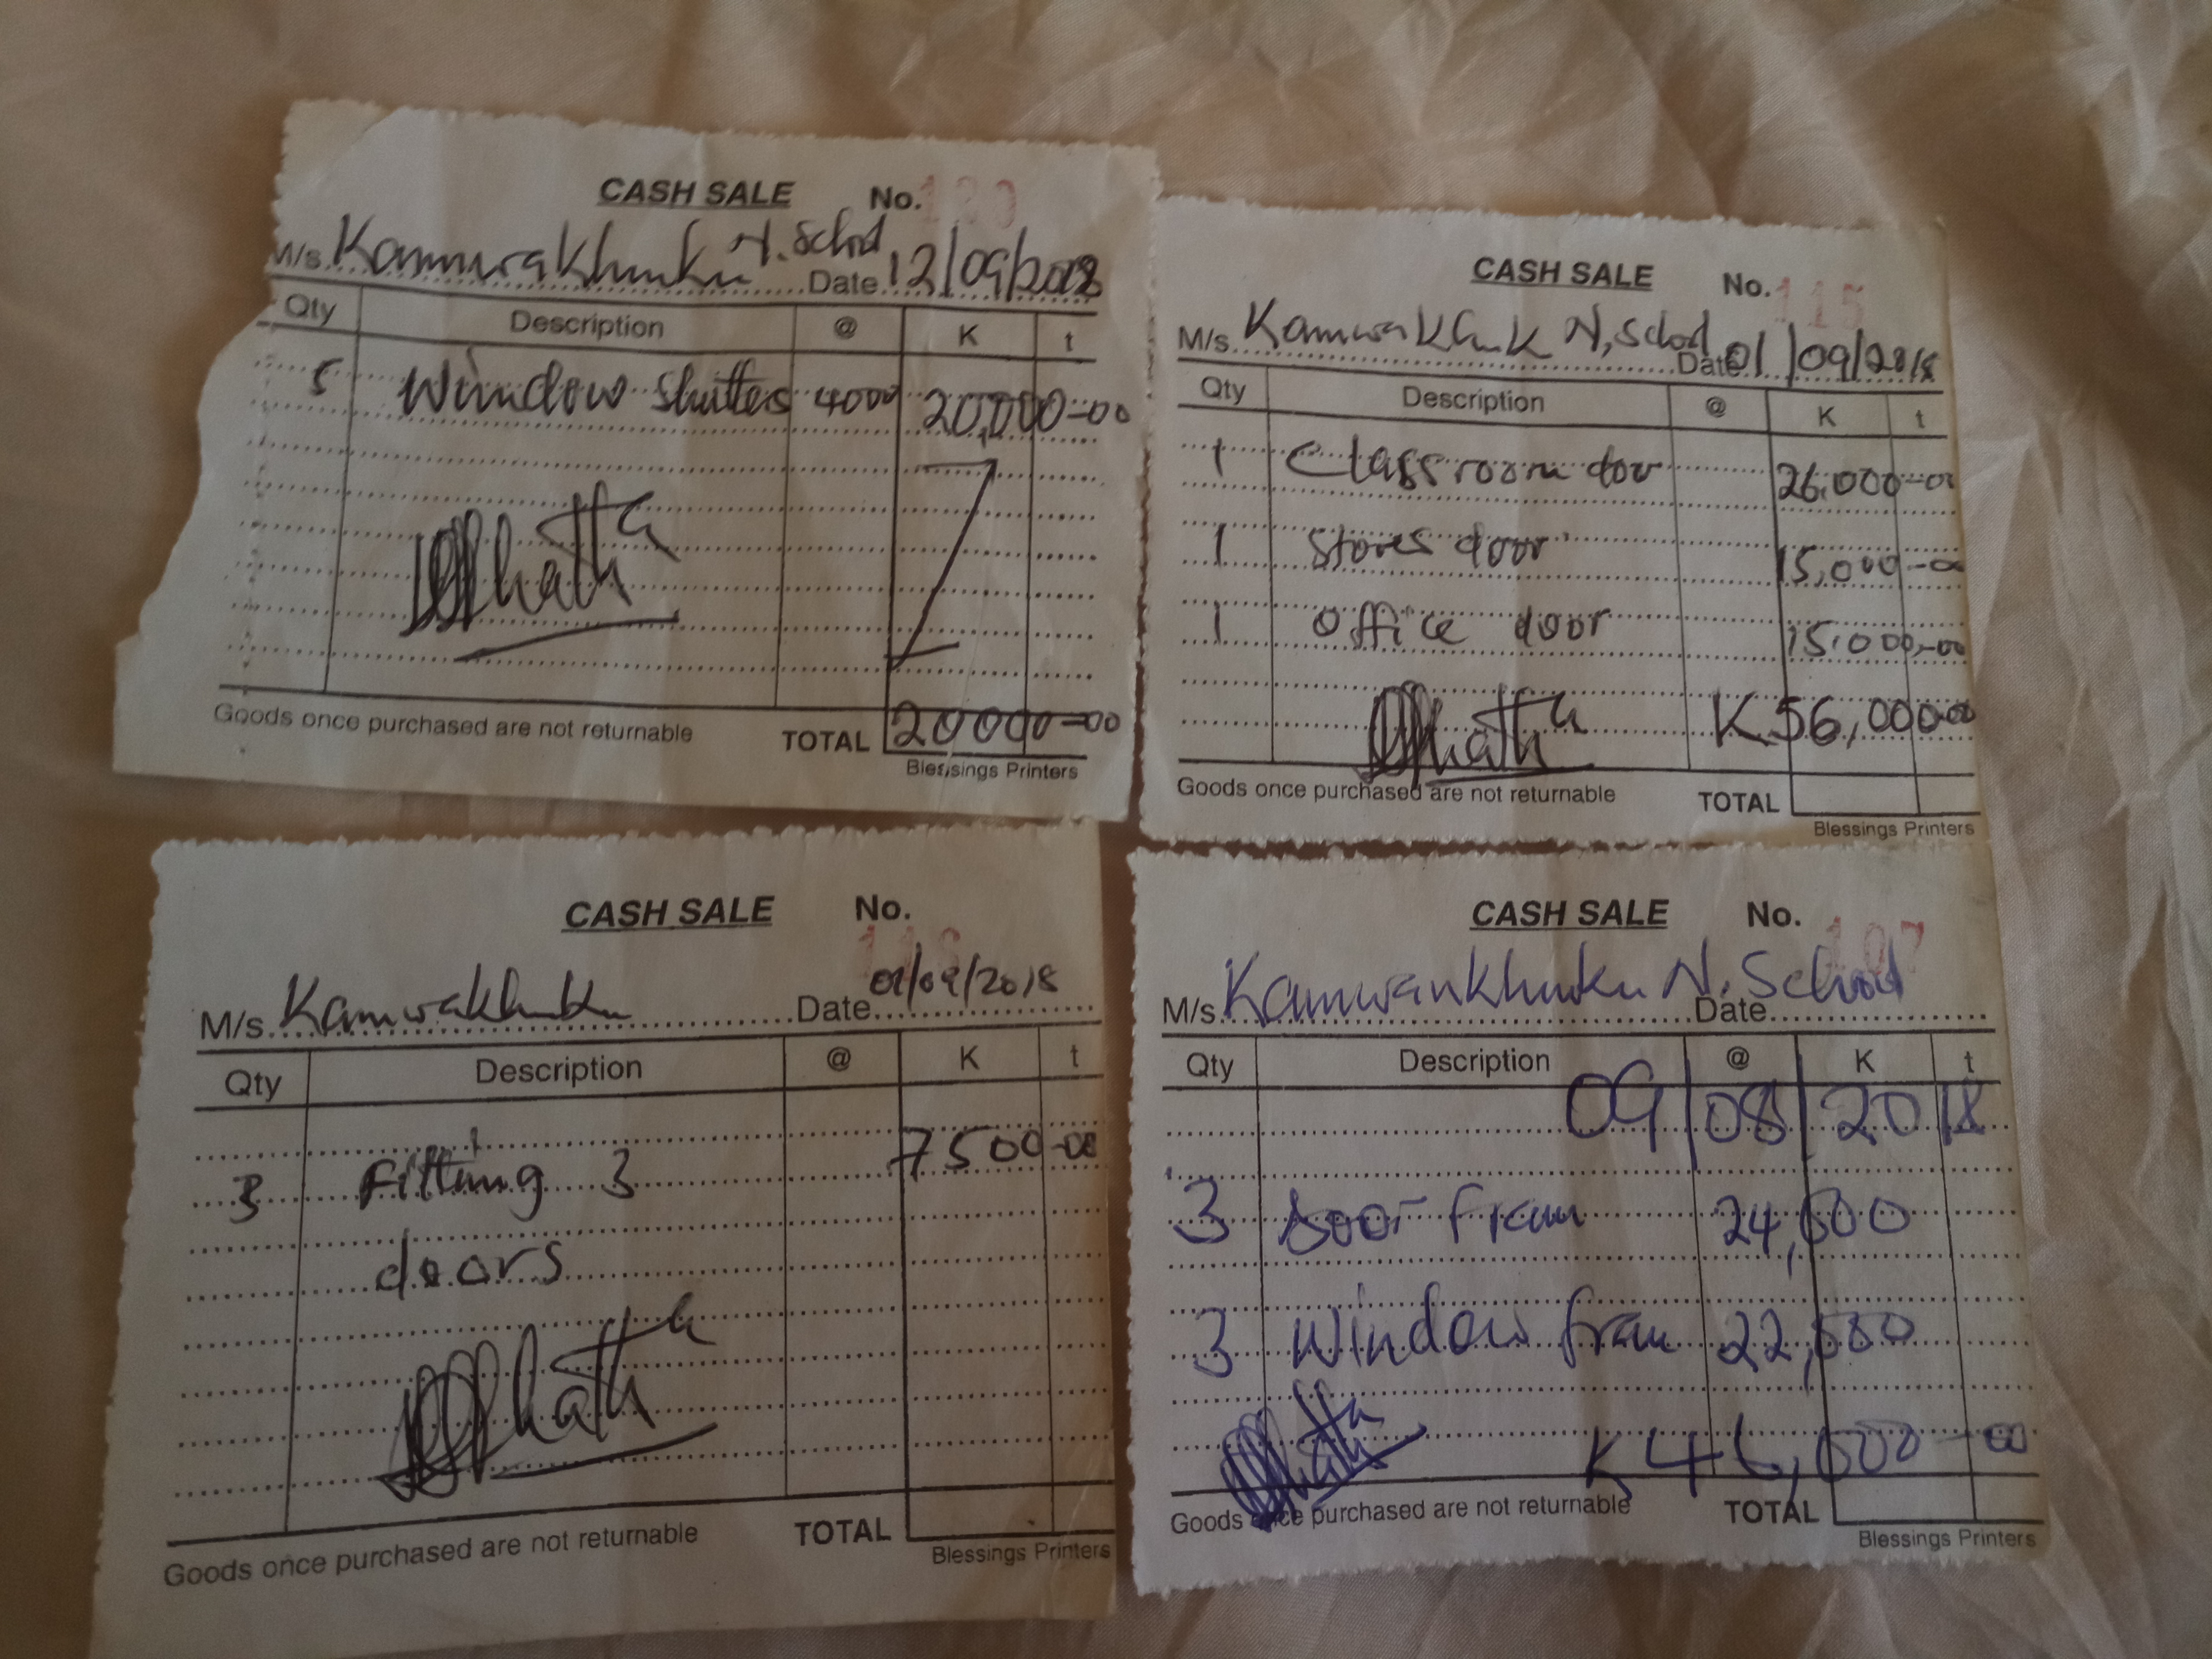 CASH SALE No. 120
M/s. Kamwakhunku N. School Date 12/09/2018
Qty Description @ K t
5 Window shutters 4000 20,000-00
Goods once purchased are not returnable TOTAL 20000-00
Blessings Printers
CASH SALE No. 115
M/s. Kamwakhuk N. School Date 01/09/2018
Qty Description @ K t
1 Classroom door 26,000-00
1 Stores door 15,000-00
1 Office door 15,000-00
K56,000-00
Goods once purchased are not returnable TOTAL
Blessings Printers
CASH SALE No.
M/s. Kamwakhuku Date 01/09/2018
Qty Description @ K t
3 Fitting 3 7500-00
doors
Goods once purchased are not returnable TOTAL
Blessings Printers
CASH SALE No. 107
M/s. Kamwankhunku N. School Date
Qty Description @ K t
09/08/2018
3 Door fram 24,000
3 Window fram 22,000
K46,000-00
Goods once purchased are not returnable TOTAL
Blessings Printers